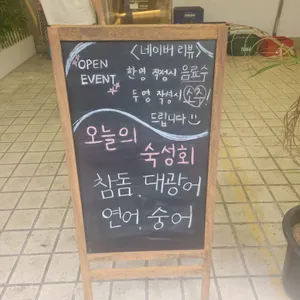 OPEN
EVENT
<네이버 리뷰>
한명 작성시 음료수
두명 작성시 소주!
드립니다
오늘의
숙성회
참돔. 대광어
연어. 숭어